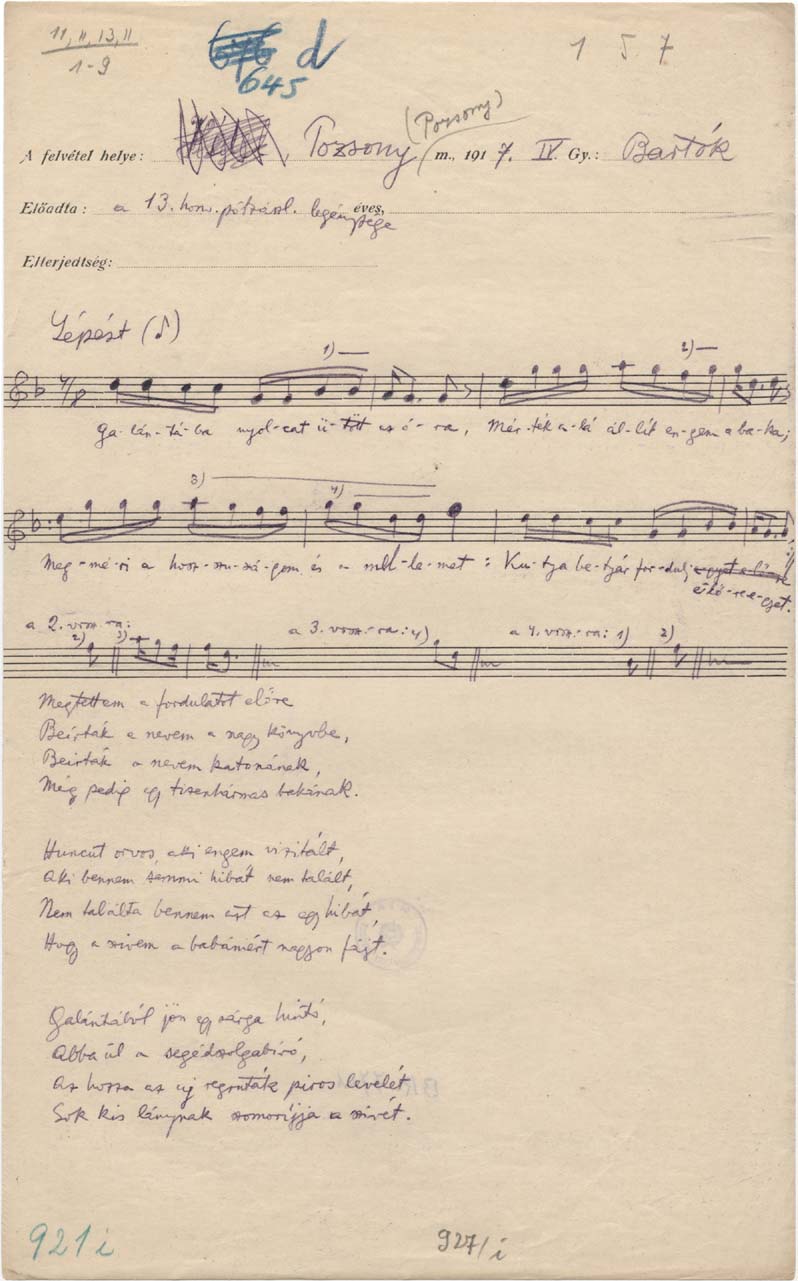 11, II, 13, II
1-9
645 d
1 5 7
A felvétel helye: Pozsony (Pozsony) m., 1917. IV. Gy.: Bartók
Előadta: a 13. honv. pótzászl. legénysége éves,
Elterjedtség:
Lépést
1) 2)
Ga-lán-tá-ba nyol-cat ü-tött az ó-ra, Mér-ték a-lá ál-lít en-gem a ba-ka;
3) 4)
Meg-mé-ri a hosz-szu-sá-gom és a mel-le-met: Ku-tya be-tyár for-dulj egyet előre
elő-re e-gyet.
a 2. vrsz.-ra: 2) 3) a 3. vrsz.-ra: 4) a 4. vrsz.-ra: 1) 2)
Megtettem a fordulatot előre
Beírták a nevem a nagy könyvbe,
Beirták a nevem katonának,
Még pedig egy tizenhármas bakának.
Huncut orvos, aki engem vizitált,
Aki bennem semmi hibát nem talált,
Nem találta bennem azt az egy hibát,
Hogy a szivem a babámért nagyon fájt.
Galántából jön egy sárga hintó,
Abba ül a segédszolgabíró,
Az hozza az uj regruták piros levelét
Sok kis lánynak szomorijja a szivét.
921 i
927/i